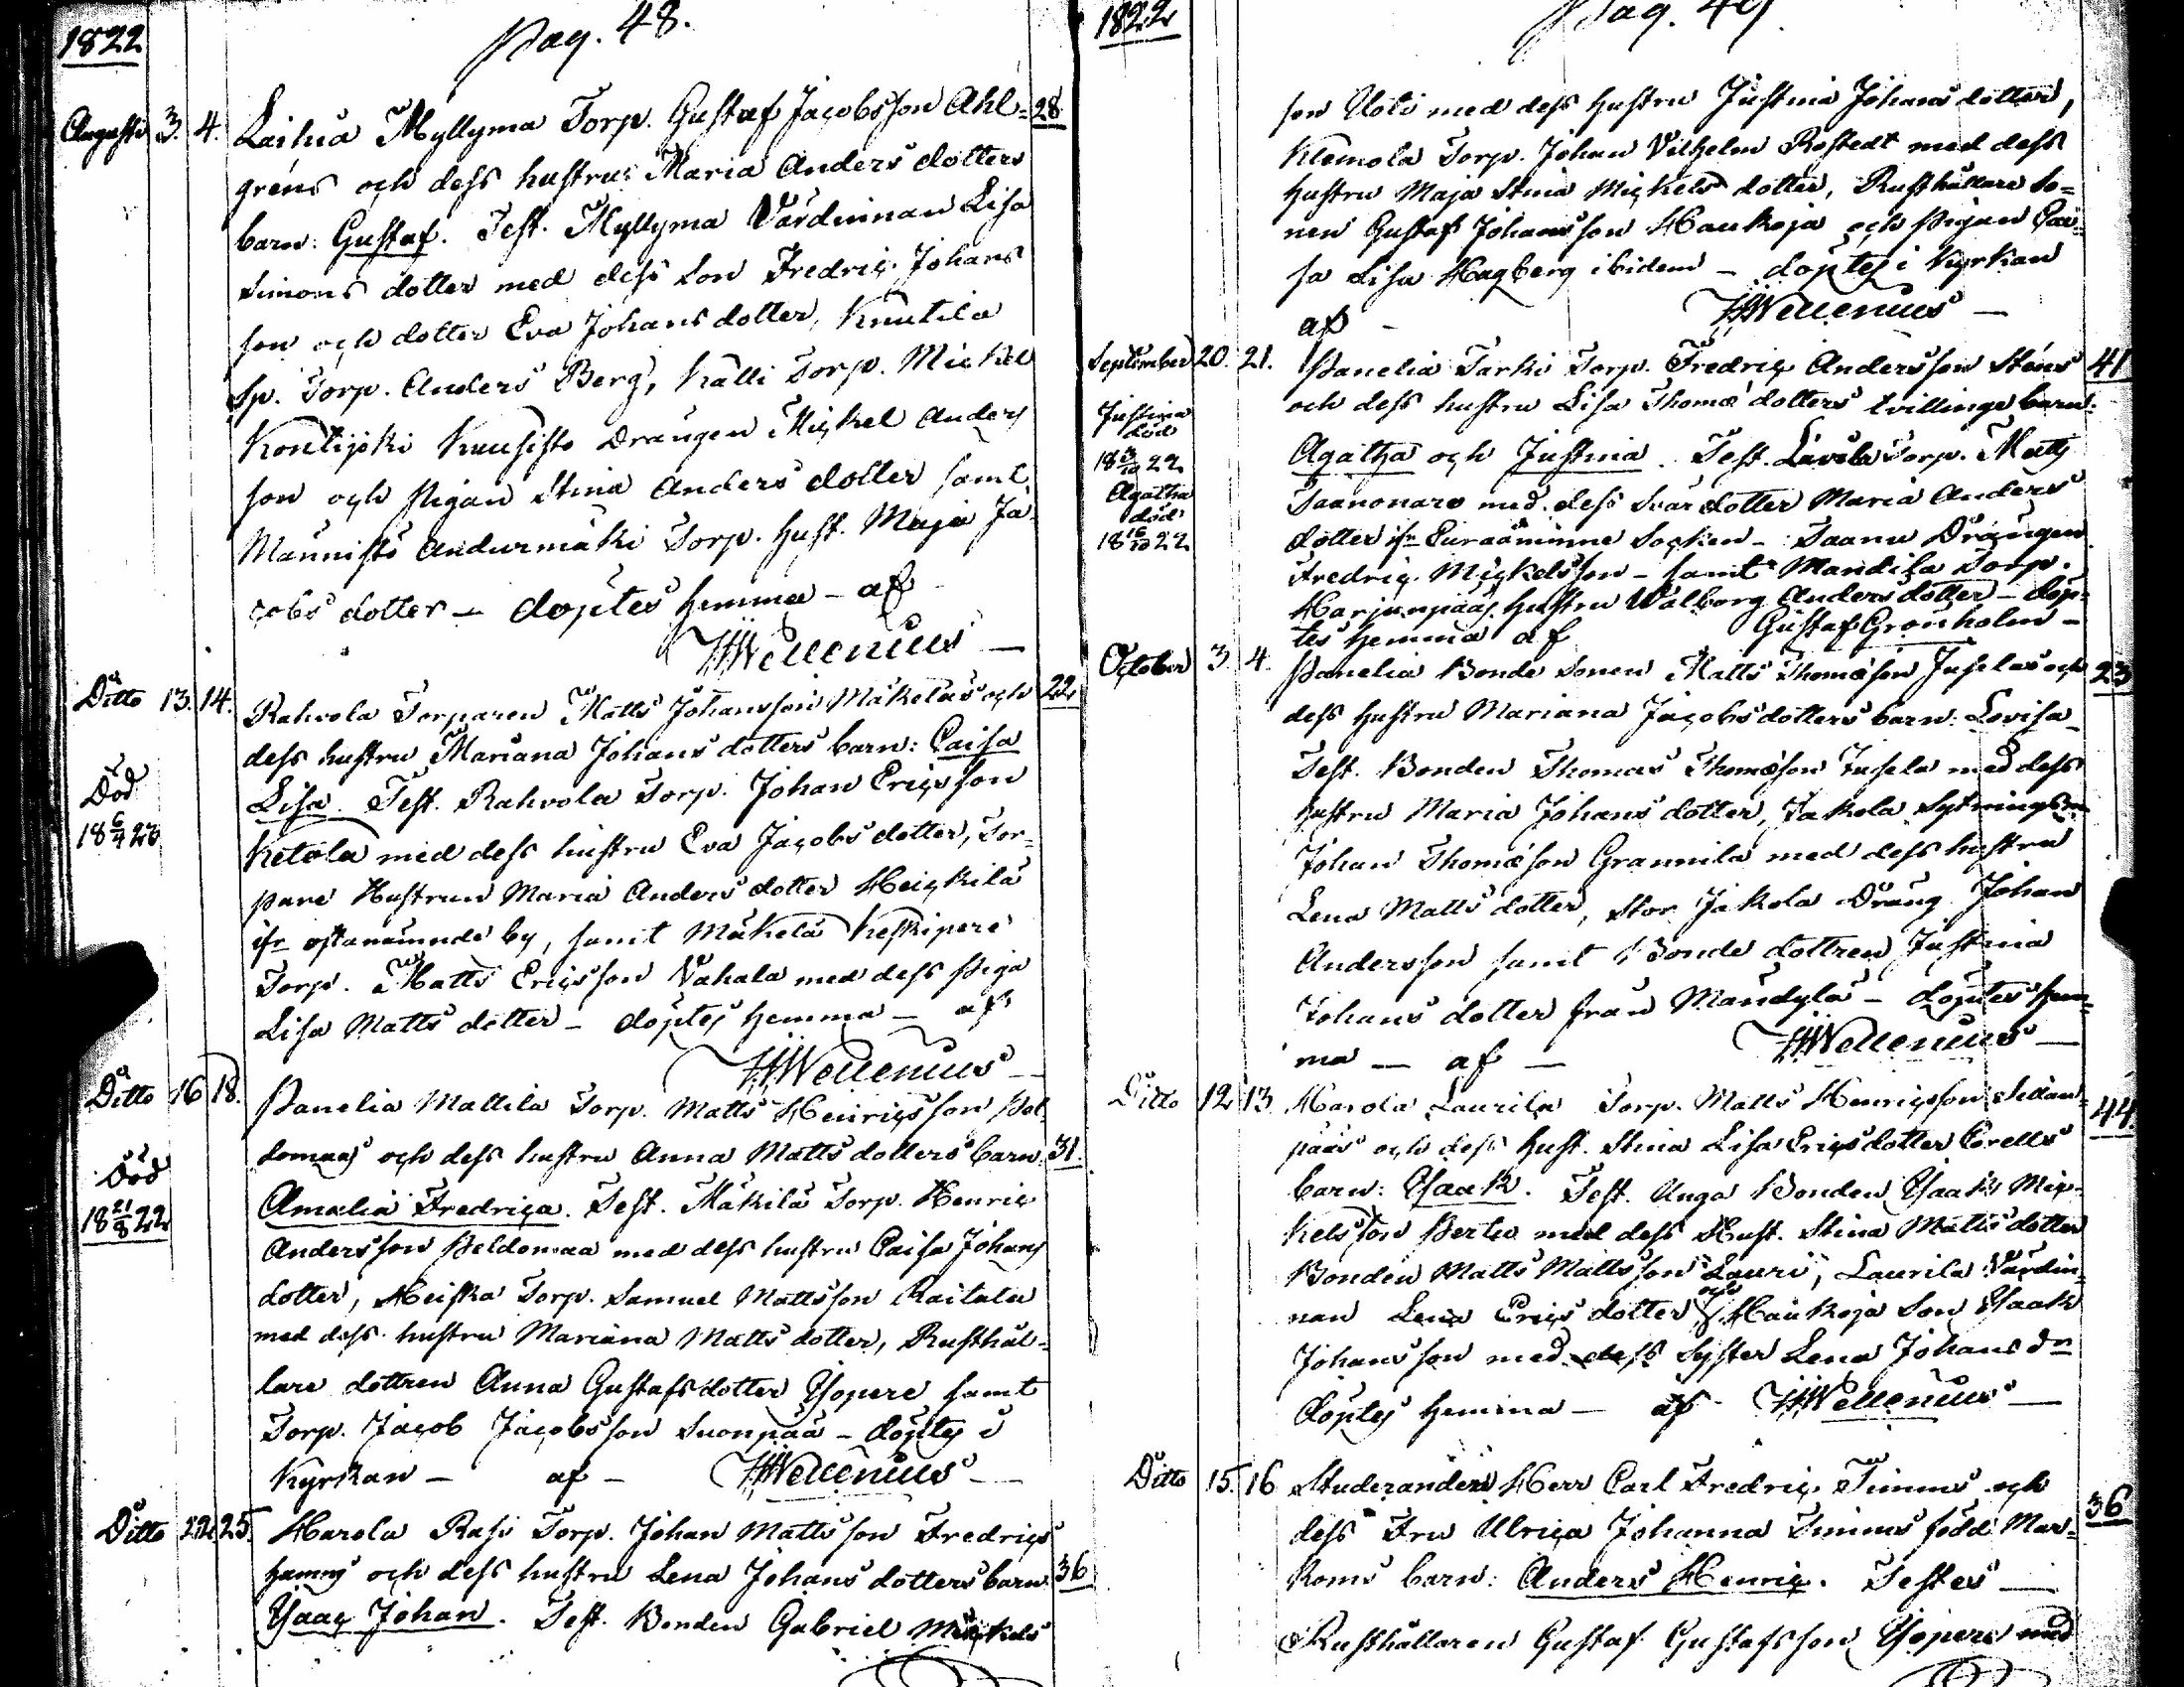 1822
Pag. 48.
Augusti 3. 4. Lailua Myllyma Torp. Gustaf Jacobsson Ahl= 28
grens och dess hustrus Maria Anders dotters
barn: Gustaf. Test. Myllyma Värdinnan Lisa
Simons dotter med dess Son Fredric Johans
son och dotter Eva Johans dotter, Knutila
Sp. Torp. Anders Berg, Källi Torp. Mickel
Kontijoki Kuusisto Drängen Mickel Anders
son och Pigan Stina Anders dotter samt
Männistö Torp. Hust. Maja Ja
cobs dotter – döptes hemma – af
HHWellenius –
Ditto 13. 14. Rahvola Torparen Matts Johansson Mäkeläs och 22
dess hustru Mariana Johans dotters barn: Caisa
Lisa. Test. Rahvola Torp. Johan Ericsson
Död
18 6/4 23
Ketola med dess hustru Eva Jacobs dotter, Tor=
pare Hustrun Maria Anders dotter Heickilä
ifr ofvannämnde by, samt Mäkelä Keskipere
Torp. Matts Ericsson Vahala med dess Piga
Lisa Matts dotter – döptes hemma – af
HHWellenius –
Ditto 16 18. Panelia Mattila Torp. Matts Henricsson Pel
domaas och dess hustru Anna Matts dotters barn 31.
Död
18 21/8 22
Amalia Fredrica. Test. Mäkilä Torp. Henric
Andersson Peldomaa med dess hustru Caisa Johans
dotter, Heiska Torp. Samuel Mattsson Raitala
med dess hustru Mariana Matts dotter, Rusthål=
lare dottren Anna Gustafs dotter Ylopere samt
Torp. Jacob Jacobsson Suonpää – döptes i
Kyrkan – af – HHWellenius –
Ditto 22 25. Harola Rasi Torp. Johan Mattsson Fredrics
hamns och dess hustru Lena Johans dotters barn 36
Ysaac Johan. Test. Bonden Gabriel Mickels
1822
Pag. 49.
son Uoti med dess hustru Justina Johans dotter,
Klemola Torp. Johan Vilhelm Rostedt med dess
hustru Maja Stina Mickels dotter, Rusthållare So=
nen Gustaf Johansson Haukoja och Pigan Cai=
sa Lisa Hagberg ibidem – döptes i Kyrkan
af – HHWellenius –
September 20. 21. Panelia Tarki Torp. Fredric Andersson Stens 41
och dess hustru Lisa Thomæ dotters tvillinge barn:
Justina
död
18 3/10 22
Agatha
död
18 16/10 22
Agatha och Justina. Test. Lavila Torp. Matts
Saanonaro med dess Svär dotter Maria Anders
dotter ifr Euraåminne Socken – Saanu Drängen
Fredric Mickelsson – samt Mandila Torp.
Harjunpääs Hustru Walborg Anders dotter – döp=
tes hemma af Gustaf Grönholm –
October 3 4. Panelia Bonde Sonen Matts Thomæson Juselas och 23
dess hustru Mariana Jacobs dotters barn: Lovisa –
Test. Bonden Thomas Thomæson Jusela med dess
hustru Maria Johans dotter, Jakola
Johan Thomæson Grannila med dess hustru
Lena Matts dotter, Stor Jakola Dräng Johan
Andersson samt Bonde dottren Justina
Johans dotter från Mandyla – döptes hem=
ma – af – HHWellenius –
Ditto 12 13 Harola Laurila Torp. Matts Henricsson 44
pääs och dess Hust. Stina Lisa Erics dotter Corells
barn: Ysaak. Test. Unga Bonden Ysaak Mic=
kelsson Pertu med dess Hust. Stina Matts dotter
Bonden Matts Mattsson Lauri, Laurila Värdin=
nan Lena Erics dotter och Haukoja Son Ysaak
Johansson med dess Syster Lena Johans dr
döptes hemma – af HHWellenius –
Ditto 15. 16 Studeranden Herr Carl Fredric Timms och
dess Fru Ulrica Johanna Timms född Mar= 36
koms barn: Anders Henric. Testes –
Rusthållaren Gustaf Gustafsson Ylopere med